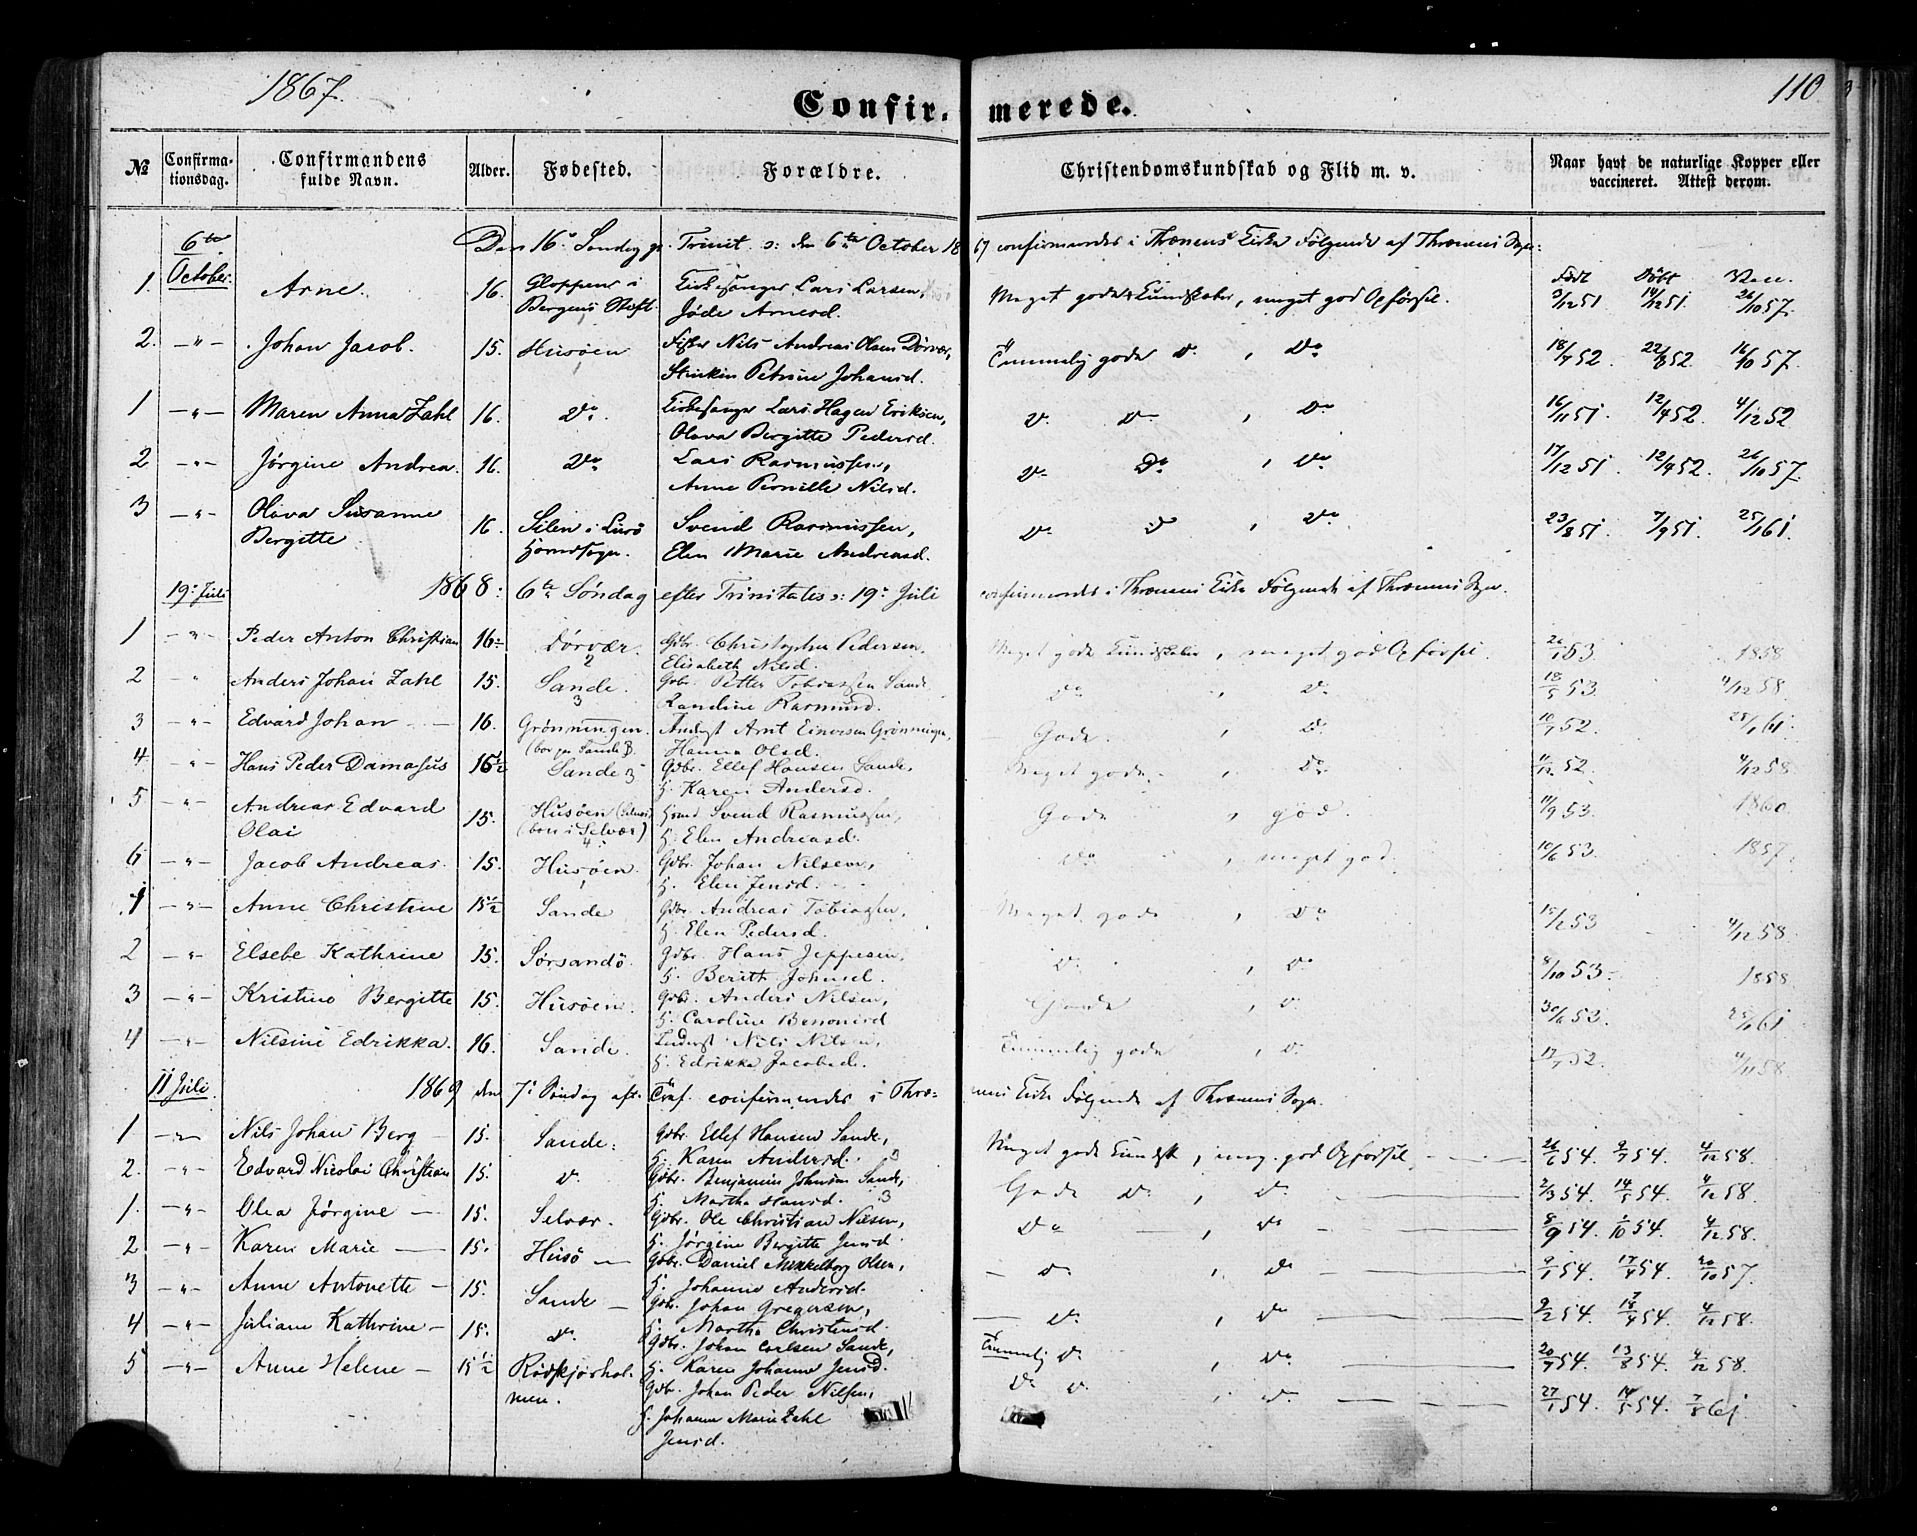 1867.
110
Confir- merede.
№ Confirma-tionsdag. Confirmandens fulde Navn. Alder. Fødested. Forældre. Christendomskundskab og Flid m. v. Naar havt de naturlige Kopper eller vaccineret. Attest derom.
6te October. Den 16de Søndag p. Trinit. o: den 6te October 1867 confirmeredes i Thrænens Kirke Følgende af Thrænens Sogn:
Født Døbt Vacc.
1. Arne. 16. Gloppens i Bergens Stift. Kirkesanger Lars Larsen, Jøde Arnesd. Meget gode Kundskaber, meget god Opførsel. 9/12 51 14/12 51. 26/10 57.
2. -"- Johan Jacob. 15. Husøen. Fisker Nils Andreas Olsen Dørvær, Petrine Johansd. Temmelig gode Do. , Do 18/7 52. 22/8 52. 16/10 57.
1 -"- Maren Anna Zahl 16. Do. Kirkesanger Lars Hagen Eriksen, Olava Bergitte Pedersd. Do. Do , Do 16/11 51. 12/4 52. 4/12 52
2 -"- Jørgine Andrea. 16. Do Lars Rasmussen, Anne Pernille Nilsd. Do. Do. , Do 17/12 51 12/4 52. 26/10 57.
3 -"- Olava Susanne Bergitte. 16. Selen i Lurø Hovedsogn. Svend Rasmussen, Elen Marie Andreasd. Do Do , Do 23/8 51. 7/9 51 25/1 61.
19de Juli 1868: 6te Søndag efter Trinitatis o: 19de Juli confirmeredes i Thrænens Kirke Følgende af Thrænens Sogn.
1 -"- Peder Anton Christian 16 Dørvær. Gdbr. Christopher Pedersen, Elisabeth Nilsd. Meget gode Kundskaber, meget god Opførsel. 26/1 53 1858
2 " Anders Johan Zahl 15. Sande. Gdbr. Petter Tobiassen Sande, Randine Rasmusd. Do , Do. 18/5 53. 4/12 58
3 -"- Edvard Johan 16. Grønningen. (bor paa Sande B. Arnt Einersen Grønningen, Hanna Olsd. Gode. , D. 10/7 52. 25/1 61.
4 " Hans Peder Damasus 16 1/2 Sande Gdbr. Ellef Hansen Sande, H. Karen Andersd. Meget gode , Do 11/12 52. 4/12 58
5 -"- Andreas Edvard Olai 15. Husøen (bor i Selvær) Svend Rasmussen, H. Elen Andreasd. Gode , god. 11/9 53. 1860
6 -"- Jacob Andreas. 15. Husøen. Gdbr. Johan Nilsen, H. Elen Jensd. Do , meget god. 10/6 53. 1857.
1 -"- Anne Christine 15 1/2 Sande Gdbr. Andreas Tobiassen, H. Elen Pedersd. Meget gode , Do 15/12 53 4/12 58.
2 -"- Elsebe Kathrine 15. Sørsandø. Gdbr. Hans Jeppesen, H. Berith Johnsd. Do. , Do 8/10 53. 1858.
3 -"- Kristine Bergitte 15. Husøen. Gdbr. Anders Nilsen, H. Caroline Benonisd Gode , D. 30/6 53. 25/1 61
4 -"- Nilsine Edrikka. 16. Sande. Nils Nilsen, H. Edrikka Jacobsd. Temmelig gode , D. 17/7 52. 4/11 58.
11 Juli. 1869 den 7de Søndag eft. Tref. confirmeredes i Thrænens Kirke Følgende af Thrænens Sogn.
1 -"- Nils Johan Berg 15. Sande. Gdbr. Ellef Hansen Sande, H. Karen Andersd. 3 Meget gode Kundsk. , meg. god Opførsel. 26/6 54. 9/7 54. 4/12 58.
2. -"- Edvard Nicolai Christian 15. Do. Gdbr. Benjamin Johnsen Sande, H. Martha Hansd. 3 Gode Do. , Do. 2/3 54. 14/5 54. 4/12 58.
1. -"- Olea Jørgine 15. Selvær. Gdbr. Ole Christian Nilsen, H. Jørgine Bergitte Jensd. Do , Do 8/9 54. 1/10 54. 4/12 58.
2 -"- Karen Marie 15. Husø Gdbr. Daniel Mikkelborg Olsen, H. Johanne Andersd. Do. , Do 9/1 54. 17/4 54. 20/10 57.
3 -"- Anne Antonette 15. Sande Gdbr. Johan Gregersen, H. Martha Christensd. Do. , Do 9/2 54. 18/4 54. 4/12 58.
4 -"- Juliane Kathrine 15. Do. Gdbr. Johan Carlsen Sande, H. Karen Johanne Jensd. Temmelig Do. , Do 20/7 54. 13/8 54. 4/12 58.
5 -"- Anne Helene 15 1/2 Rødskjærholmen. Gdbr. Johan Peder Nilsen, H. Johanne Marie Zahl Jensd. Do Do. , Do 27/1 54. 14/5 54. 7/8 61.